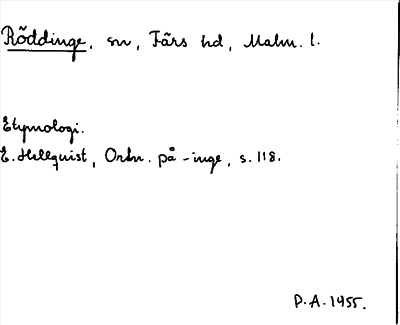 Röddinge, sn, Färs hd, Malm. l.
Etymologi.
E. Hellquist, Ortn. på -inge, s. 118.
P.A. 1955.